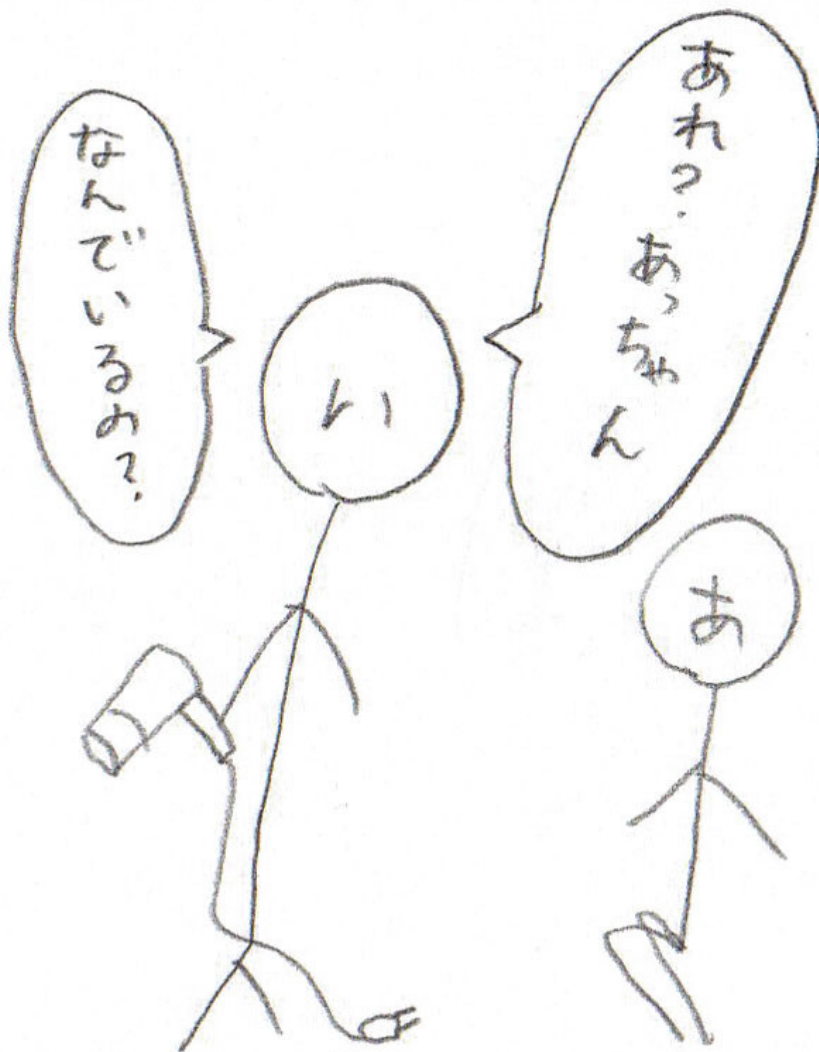 あれ?あっちゃん
なんでいるの?
い
あ